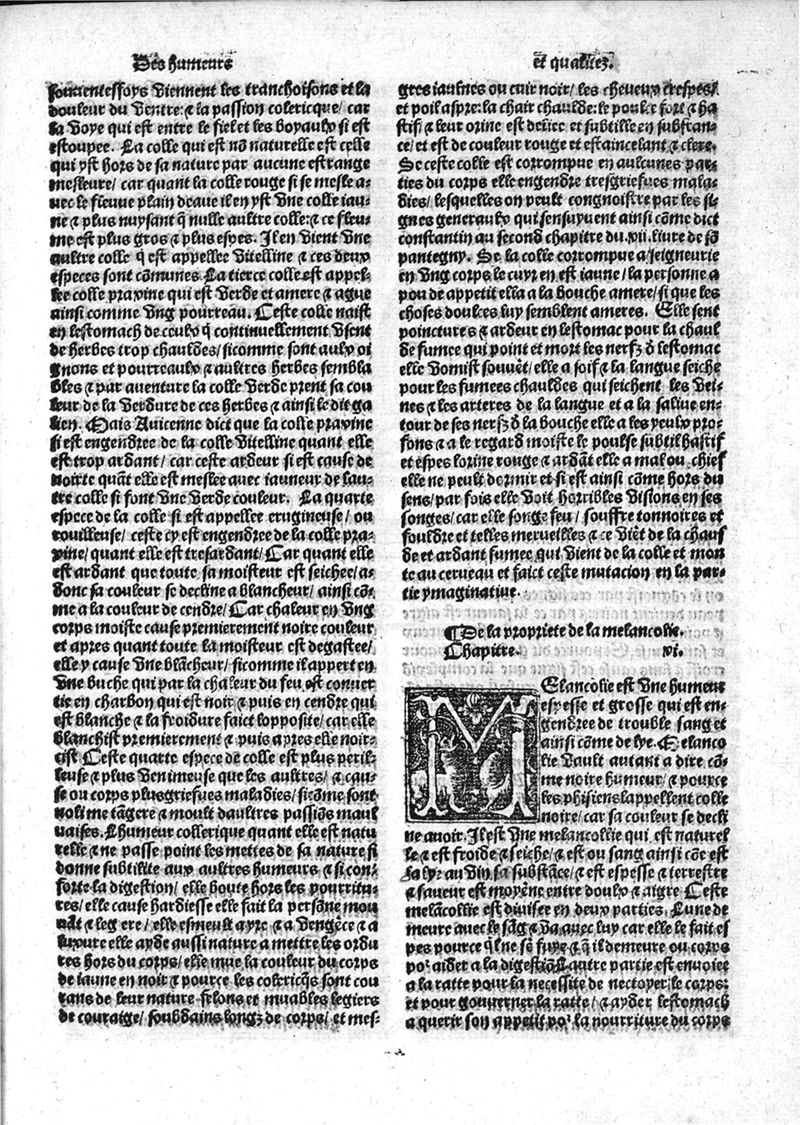 Des humeurs
et qualitez.
souuentesfoys viennent les tranchoisons et la
douleur du ventre: ⁊ la passion colericque/ car
la voye qui est entre le fiel et les boyaulx si est
estoupee. La colle qui est nõ naturelle est celle
qui yst hors de sa nature par aucune estrange
mesleure/ car quant la colle rouge si se mesle a-
uec le fleume plain deaue il en yst vne colle iau-
ne ⁊ plus nuysant q̃ nulle aultre colle: ⁊ ce fleu-
me est plus gros ⁊ plus espes. Il en vient vne
aultre colle q̃ est appellee vitelline ⁊ ces deux
especes sont cõmunes. La tierce colle est appel-
lee colle praxine qui est verde et amere ⁊ ague
ainsi comme vng pourreau. Ceste colle naist
en lestomach de ceulx q̃ continuellement vsent
de herbes trop chauldes/ sicomme sont aulx oi
gnons et pourreaulx ⁊ aultres herbes sembla
bles ⁊ par auenture la colle verde prent sa cou
leur de la verdure de ces herbes ⁊ ainsi le dit ga
lien. Mais Auicenne dict que la colle praxine
si est engendree de la colle vitelline quant elle
est trop ardant/ car ceste ardeur si est cause de
noirte quãt elle est meslee auec iauneur de lau-
tre colle si font vne verde couleur. La quarte
espece de la colle si est appellee erugineuse/ ou
rouilleuse/ ceste cy est engendree de la colle pra-
xine/ quant elle est tresardant/ Car quant elle
est ardant que toute sa moisteur est seichee/ a-
donc sa couleur se decline a blancheur/ ainsi cõ-
me a la couleur de cendre/ Car chaleur en vng
corps moiste cause premierement noire couleur
et apres quant toute la moisteur est degastee/
elle y cause vne blãcheur/ sicomme il appert en
vne buche qui par la chaleur du feu est conuer
tie en charbon qui est noir ⁊ puis en cendre qui
est blanche ⁊ la froidure faict lopposite/ car elle
blanchist premierement ⁊ puis apres elle noir-
cist Ceste quarte espece de colle est plus peril-
leuse ⁊ plus venimeuse que les aultres/ ⁊ cau-
se ou corps plus griefues maladies/ si cõme sont
noli me tãgere ⁊ moult daultres passiõs maul
uaises. Lhumeur collerique quant elle est natu
relle ⁊ ne passe point les mettes de sa nature si
donne subtilite aux aultres humeurs ⁊ si con-
forte la digestion/ elle boute hors les pourritu-
res/ elle cause hardiesse elle fait la persõne mou
uãt ⁊ legere/ elle esmeult a yre ⁊ a vengẽce ⁊ a
luxure elle ayde aussi nature a mettre les ordu
res hors du corps/ elle mue la couleur du corps
de iaune en noir ⁊ pource les colericq̃s sont cou
rans de leur nature felons et muables legiers
de couraige/ soubdains longz de corps/ et mes-
gres iaulnes ou cuir noir/ les cheueux crespes/
et poil aspre: la chair chaulde: le poulce fort ⁊ ha
stif/ ⁊ leur orine est deliee et subtille en substan-
ce/ et est de couleur rouge et estaincelant ⁊ clere.
Se ceste colle est corrompue en aulcunes par-
ties du corps elle engendre tresgriefues mala-
dies/ lesquelles on peult congnoistre par les si-
gnes generaulx qui sensuyuent ainsi cõme dict
constantin au second chapitre du .xii. liure de sõ
pantegny. Se la colle corrompue a seigneurie
en vng corps le cuyr en est iaune/ la personne a
pou de appetit ella a la bouche amere/ si que les
choses doulces luy semblent ameres. Elle sent
poinctures ⁊ ardeur en lestomac pour la chaul
de fumee qui point et mort les nerfz d̃ lestomac
elle vomist souuẽt/ elle a soif ⁊ la langue seiche
pour les fumees chauldes qui seichent les vei-
nes ⁊ les arteres de la langue et a la saliue en-
tour de ses nerfz d̃ la bouche elle a les yeulx pro-
fons ⁊ a le regard moiste le poulse subtil hastif
et espes lorine rouge ⁊ ardãt elle a mal ou chief
elle ne peult dormir et si est ainsi cõme hors du
sens/ par fois elle voit horribles visions en ses
songes/ car elle songe feu/ souffre tonnoires et
fouldre et telles merueilles ⁊ ce viẽt de la chaul
de et ardant fumee qui vient de la colle et mon
te au cerueau et faict ceste mutacion en la par-
tie ymaginatiue.
¶De la propriete de la melancolie.
Chapitre. vi.
MElancolie est vne humeur
espesse et grosse qui est en-
gendree de trouble sang et
ainsi cõme de lye. Melanco
lie vault autant a dire cõ-
me noire humeur/ ⁊ pource
les phisiens lappellent colle
noire/ car sa couleur se decli
ne a noir. Il est vne melancollie qui est naturel
le ⁊ est froide ⁊ seiche/ ⁊ est ou sang ainsi cõe est
la lye au vin sa substãce/ ⁊ est espesse ⁊ terrestre
⁊ saueur est moyẽne entre doulx ⁊ aigre Ceste
melãcollie est diuisee en deux parties. Lune de
meure auec le sãg ⁊ va auec luy car elle le fait es
pes pource q̃l ne sẽ fuye/ ⁊ q̃ il demeure ou corps
por aider a la digestiõ Lautre partie est enuoiee
a la ratte pour la necessite de nectoyer le corps:
et pour gouuerner la ratte/ ⁊ ayder lestomach
a querir son appetit por la nourriture du corps